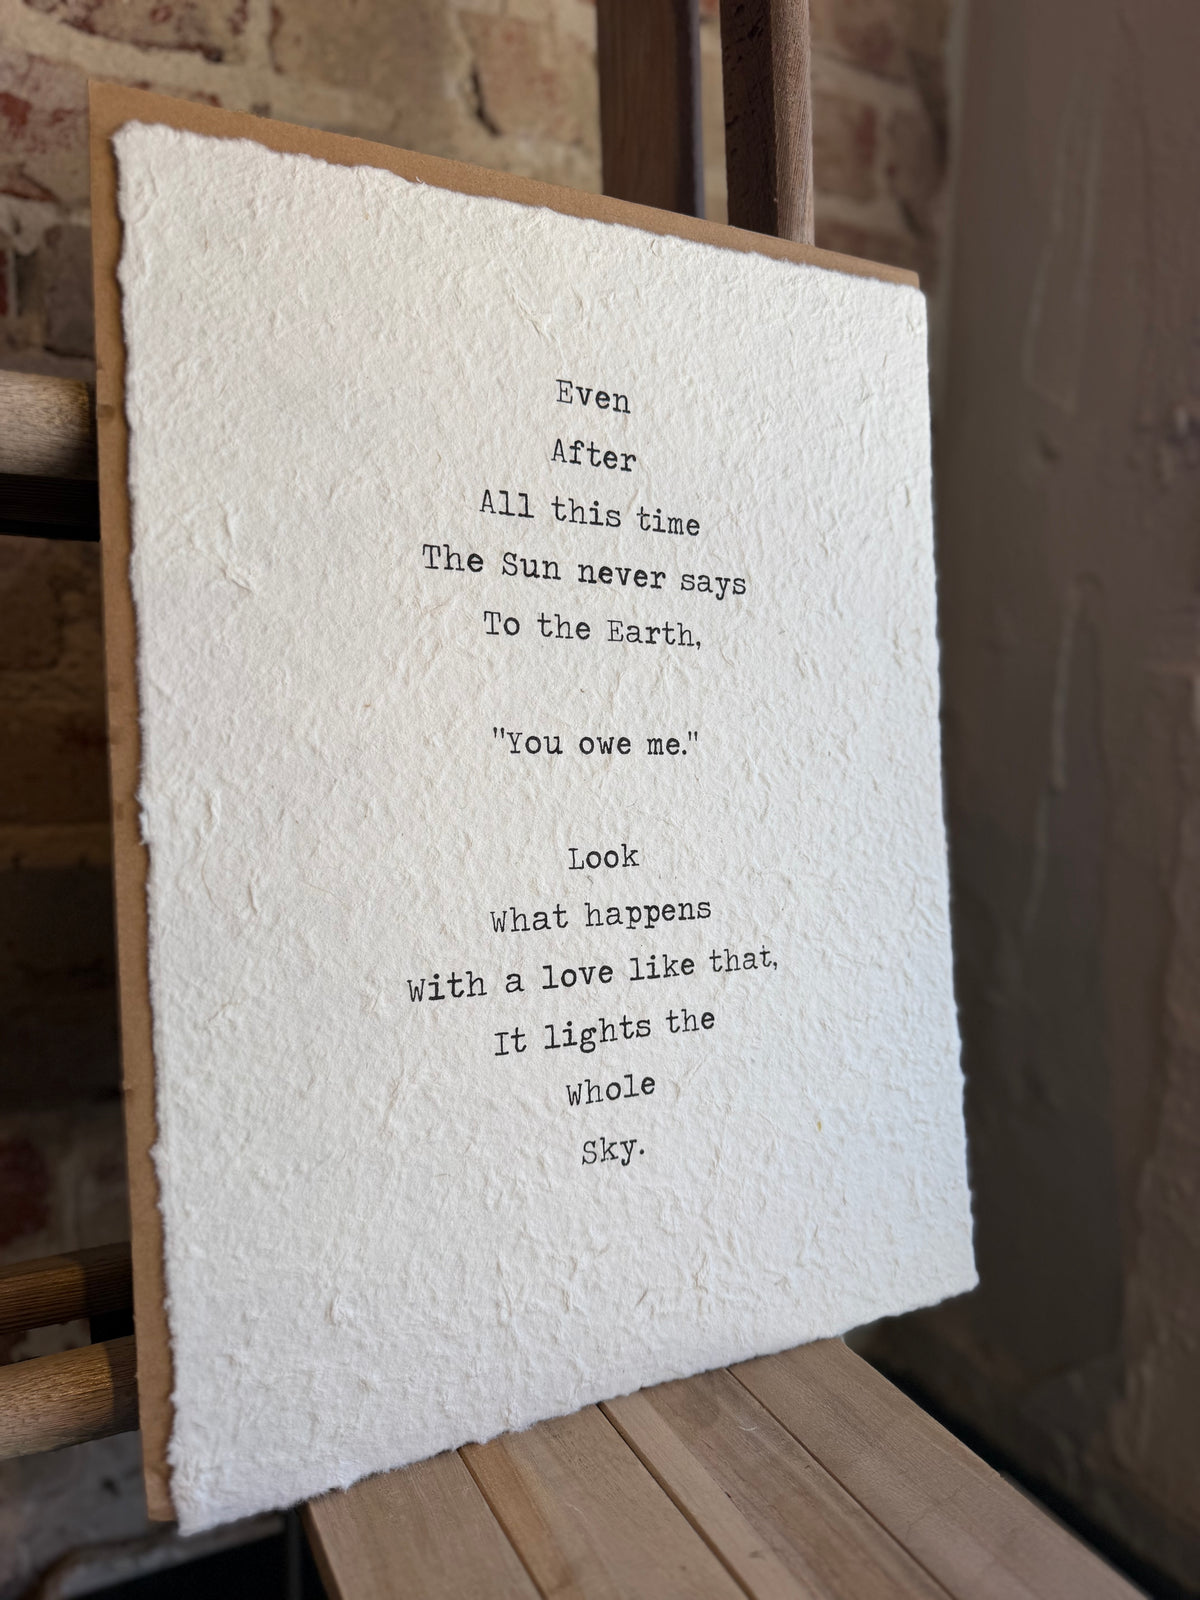 Even
After
All this time
The Sun never says
To the Earth,
"You owe me."
Look
What happens
With a love like that,
It lights the
Whole
Sky.